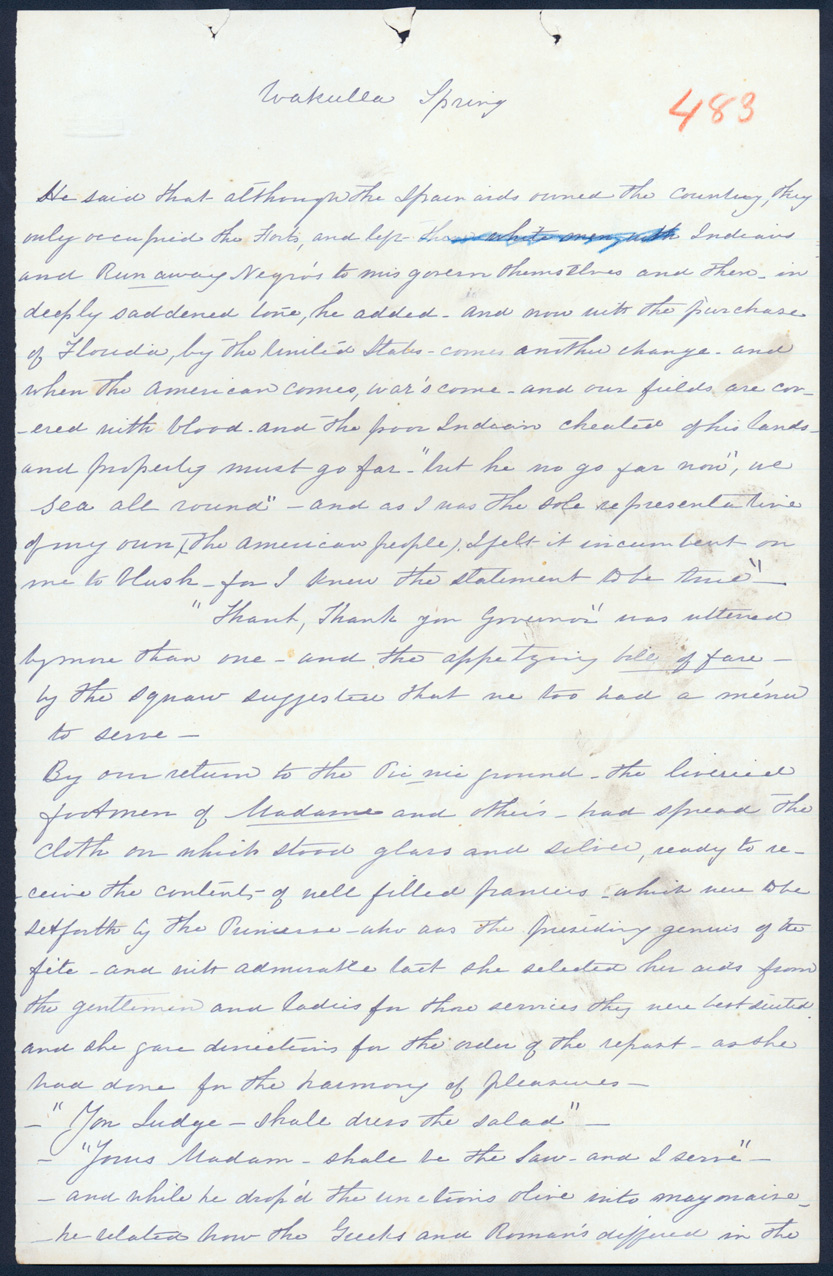 Wakulla Spring
483
He said that although the Spaniards owned the country, they
only occupied the Forts, and left the white men, with Indians
and Runaway Negro's to mis govern themselves and then - in
deeply saddened tone, he added - and now with the purchase
of Florida, by the United States - comes another change - and
when the American comes, war's come - and our fields are cov-
-ered with blood - and the poor Indian cheated of his lands -
and property must go far - "but he no go far now", we
sea all round" - and as I was the sole representative
of my own, (the American people). I felt it incumbent on
me to blush - for I knew the statement to be true" -
"Thank, Thank you Governor" was uttered
by more than one - and the appetyzing bill of fare -
by the squaw suggested that we too had a ménu
to serve -
By our return to the Pic nic ground - the liveried
footmen of Madame and other's - had spread the
cloth on which stood glass and silver, ready to re-
ceive the contents of well filled paniers - which were to be
set forth by the Princess - who was the presiding genius of the
fête - and with admirable tact she selected her aids from
the gentlemen and ladies for those services they were best suited
and she gave directions for the order of the repast - as she
had done for the harmony of pleasures -
- "You Judge - shall dress the salad" -
- "Yours Madam - shall be the Law - and I serve" -
- and while he drop'd the unctious olive into mayonaise -
- he related how the Greeks and Roman's differed in the